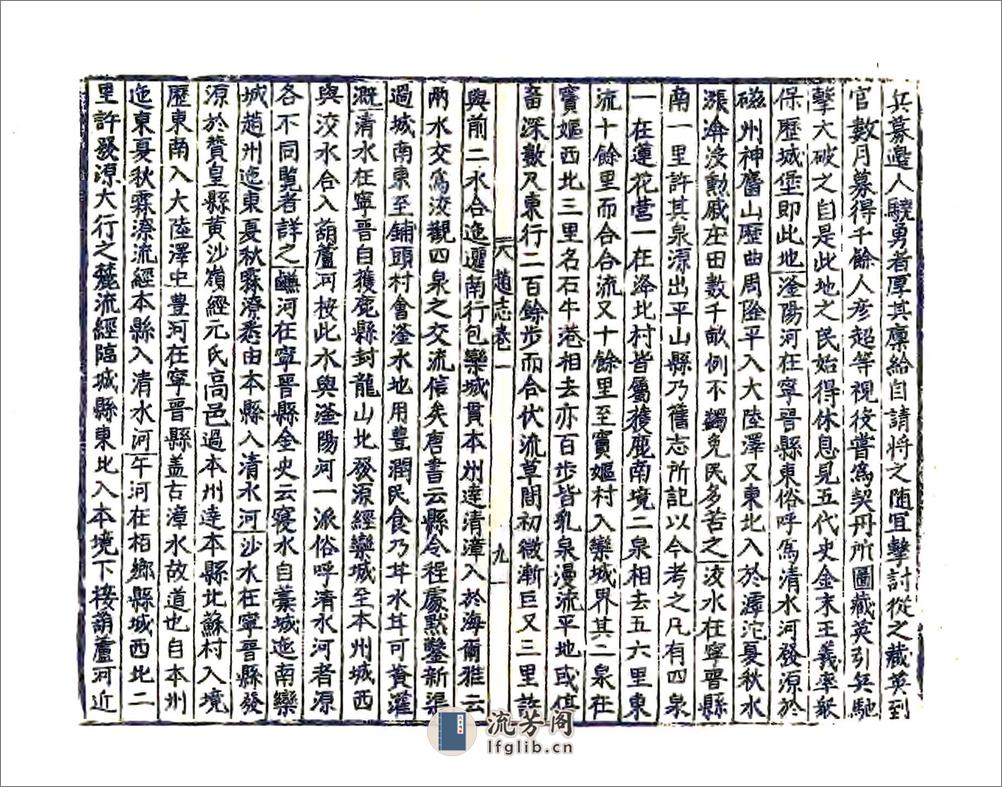 兵募邊人驍勇者厚其廩給自請將之隨宜擊討從之藏英到
官數月募得千餘人彥超等視役嘗爲契丹所圍藏英引兵馳
擊大破之自是此地之民始得休息見五代史金末王義率衆
保歷城堡即此地滏陽河在寧晉縣東俗呼爲清水河發源於
磁州神麕山歷曲周隆平入大陸澤又東北入於滹沱夏秋水
漲渰沒勳戚庄田數千畝例不蠲免民多苦之洨水在寧晉縣
南一里許其泉源出平山縣乃舊志所記以今考之凡有四泉
一在蓮花營一在洛北村皆屬獲鹿南境二泉相去五六里東
流十餘里而合合流又十餘里至竇嫗村入欒城界其二泉在
竇嫗西北三里名石牛港相去亦百步皆乳泉漫流平地或停
畜深數尺東行二百餘步而合伏流草間初微漸巨又三里許
趙志卷一
九
與前二水合迤邐南行包欒城貫本州達清漳入於海爾雅云
兩水交爲洨觀四泉之交流信矣唐書云縣令程處默鑿新渠
過城南東至鋪頭村會滏水地用豐潤民食乃甘水甘可資灌
溉清水在寧晉自獲鹿縣封龍山北發源經欒城至本州城西
與洨水合入葫蘆河按此水與滏陽河一派俗呼清水河者源
各不同覽者詳之鹹河在寧晉縣金史云寢水自藁城迤南欒
城趙州迤東夏秋霖潦悉由本縣入清水河沙水在寧晉縣發
源於贊皇縣黃沙嶺經元氏高邑過本州達本縣北蘇村入境
歷東南入大陸澤中豊河在寧晉縣盖古漳水故道也自本州
迤東夏秋霖潦流經本縣入清水河午河在栢鄉縣城西北二
里許發源大行之麓流經臨城縣東北入本境下接葫蘆河近
流芳阁
lfglib.cn